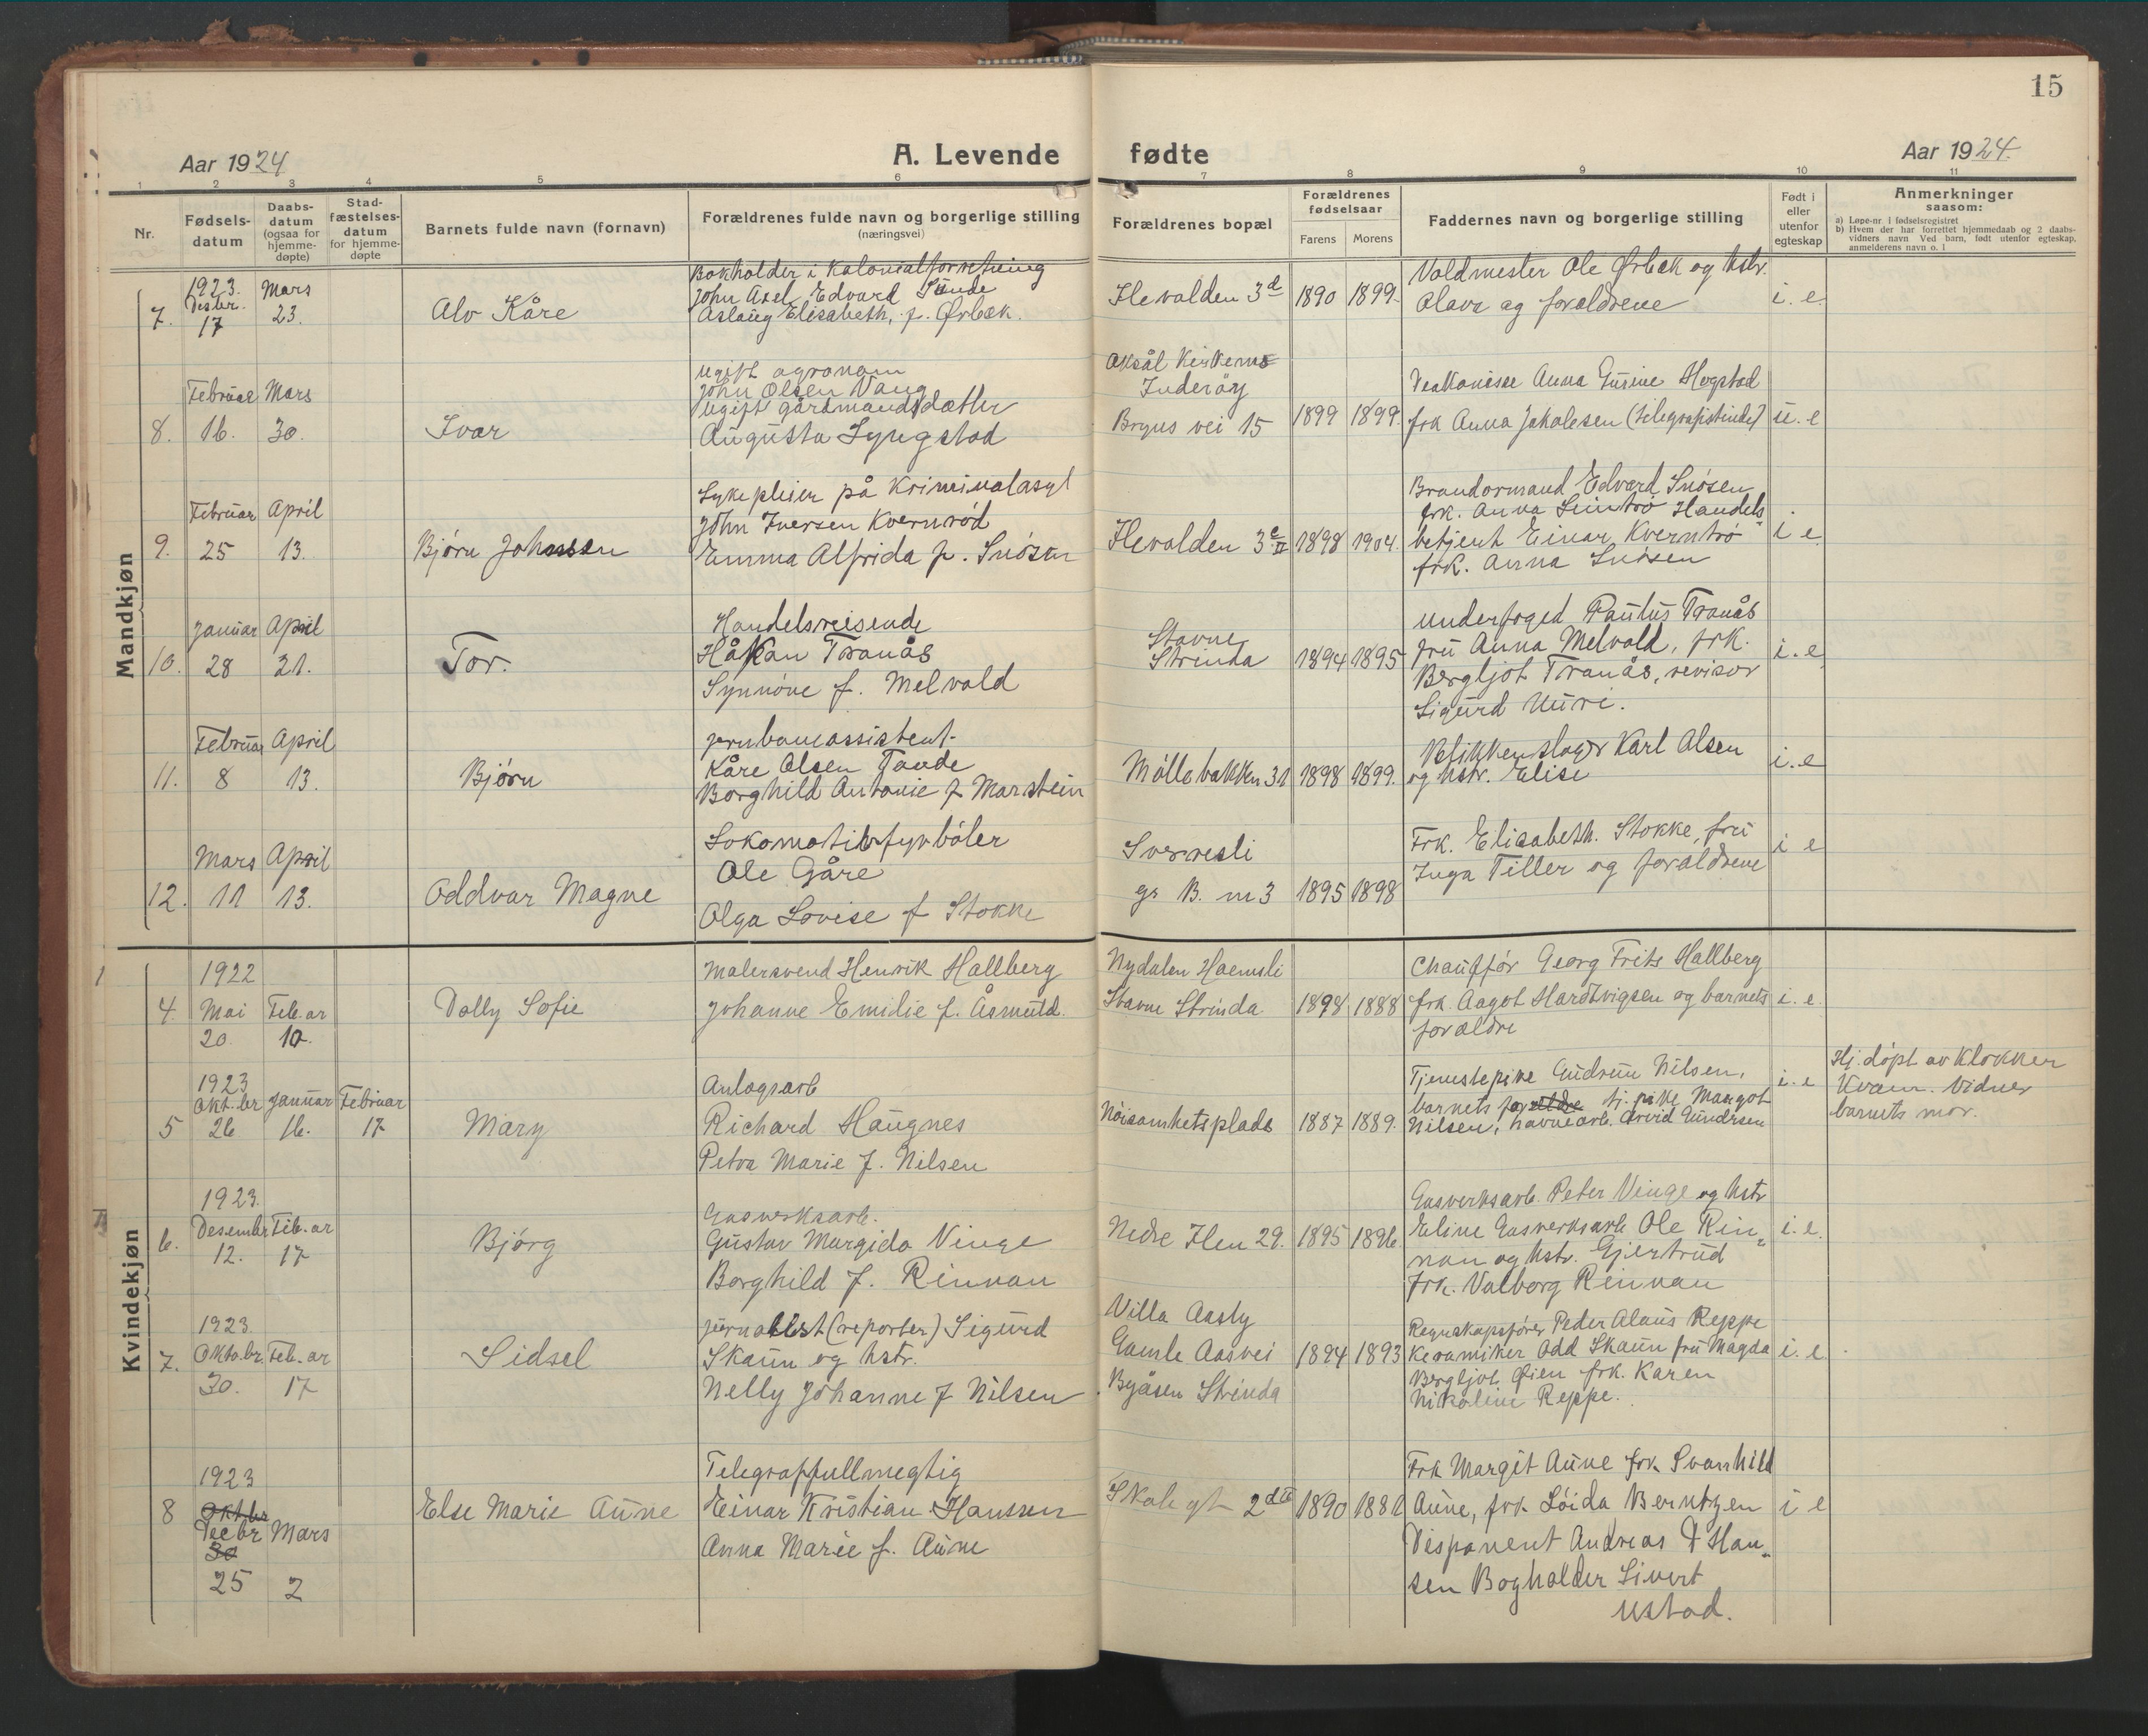 15
Aar 1924
A. Levende fødte
Aar 1924.
1 2 3 4 5 6 7 8 9 10 11
Nr.
Fødsels-
datum
Daabs-
datum
(ogsaa for
hjemme-
døpte)
Stad-
fæstelses-
datum
for hjemme-
døpte
Barnets fulde navn (fornavn)
Forældrenes fulde navn og borgerlige stilling
(næringsvei)
Forældrenes bopæl
Forældrenes
fødselsaar
Farens Morens
Faddernes navn og borgerlige stilling
Født i
eller
utenfor
egteskap
Anmerkninger
saasom:
a) Løpe-nr. i fødselsregistret
b) Hvem der har forrettet hjemmedaab og 2 daabs-
vidners navn Ved barn, født utenfor egteskap,
anmelderens navn o. l
Mandkjøn
7.
1923.
Desbr.
17
Mars
23.
Alv Kåre
Bokholder i Kolonialforretning
John Axel Edvard Sunde
Aslaug Elisabeth, f. Ørbek.
Ilevolden 3d
1890 1899.
Voldmester Ole Ørbek og hstr.
Olava og forældrene
i. e.
8.
Februar
16.
Mars
30.
Ivar
Ugift agronom
John Olsen Vang
Ugift gårdmandsdatter
Augusta Lyngstad
Inderöy
Bryns vei 15
1899 1899.
Deakonisse Anna Gurine Hogstad
frk Anna Jakobsen (telegrafistinde)
u. e
9.
Februar
25
April
13.
Bjørn Johnssen
Sykepleier på Kriminalasyl
John Iversen Kvernrød
Emma Alfrida f. Snösen
Ilevolden 3e II
1898 1904.
Brandormand Edvard Snösen
frk. Anna Handels-
betjent Einar Kverntrö
frk. Anna Snösen
i e.
10.
Januar
28
April
21.
Tor.
Handelsreisende
Håkan Tranås
Synnöve f. Melvold
Stavne
Strinda
1894 1895
Underfoged Paulus Tranås
fru Anna Melvold, frk.
Bergljot Tranås, revisor
Sigurd Muri.
i. e
11.
Februar
8
April
13.
Bjørn
Jernbaneassistent.
Kåre Olsen Tande
Borghild Antonie f Marstein
Möllebakken 31
1898 1899.
Blikkenslager Karl Olsen
og hstr. Elise
i. e
12.
Mars
11
April
13.
Oddvar Magne
Lokomotivfyrböter
Ole Gåre
Olga Lovise f Stokke
Sverresli
gs B. m 3
1895 1898
Frk. Elisabeth. Stokke, fru
Inga Tiller og forældrene
i e
Kvindekjøn
4.
1922
Mai
20.
Feb.ar
10.
Dolly Sofie
Malersvend Henrik Hallberg
Johanne Emilie f. Åsmuld.
Nydalen Havnsli
Stavne Strinda
1898 1888
Chauffør Georg Frits Hallberg
frk. Aagot Hardtvigsen og barnets
forældre
i. e.
5
1923
Okt.br
26
Januar
16.
Februar
17
Mary
Anlagsarb
Richard Haugnes
Petra Marie f. Nilsen
Nöisomhetsplads
1887 1889.
Tjenstepike Gudrun Nilsen,
barnets forældre tj. pike Margot
Nilsen, havnearb. Arvid Gundrsen
i. e
Hj. döpt av Klokker
Kvam. Vidner
barnets mor.
6.
1923.
Desembr
12.
Feb.ar
17
Bjørg
Gasverksarb.
Gustav Margido Vinge
Borghild f. Rinnan
Nedre Ilen 29.
1895 1896.
Gasverksarb. Peter Vinge og hstr
Eline Gasverksarb Ole Rin-
nan og hstr. Gjertrud
frk. Valborg Rinnan
i. e.
7.
1923.
Oktobr
30.
Feb.ar
17
Sidsel
Jurnalist (reporter) Sigurd
Skaun og hstr.
Nelly Johanne f Nilsen
Villa Aasly
Gamle Aasvei
Byåsen Strinda
1894 1893
Regnskapsfører Peder Olaus Reppe
Keramiker Odd Skaun fru Magda
Bergljot Øien frk. Karen
Nikoline Reppe.
i. e.
8
1923
Oktbr
Decbr
30
25
Mars
2
Else Marie Aune
Telegraffullmegtig
Einar Kristian Hanssen
Anna Marie f. Aune
Skolegt 2dII
1890 1881
Frk Margit Aune frk Svanhild
Aune, frk Löida Berntzen
Disponent Andreas D Han-
sen Bogholder Sivert
Ustad.
i e